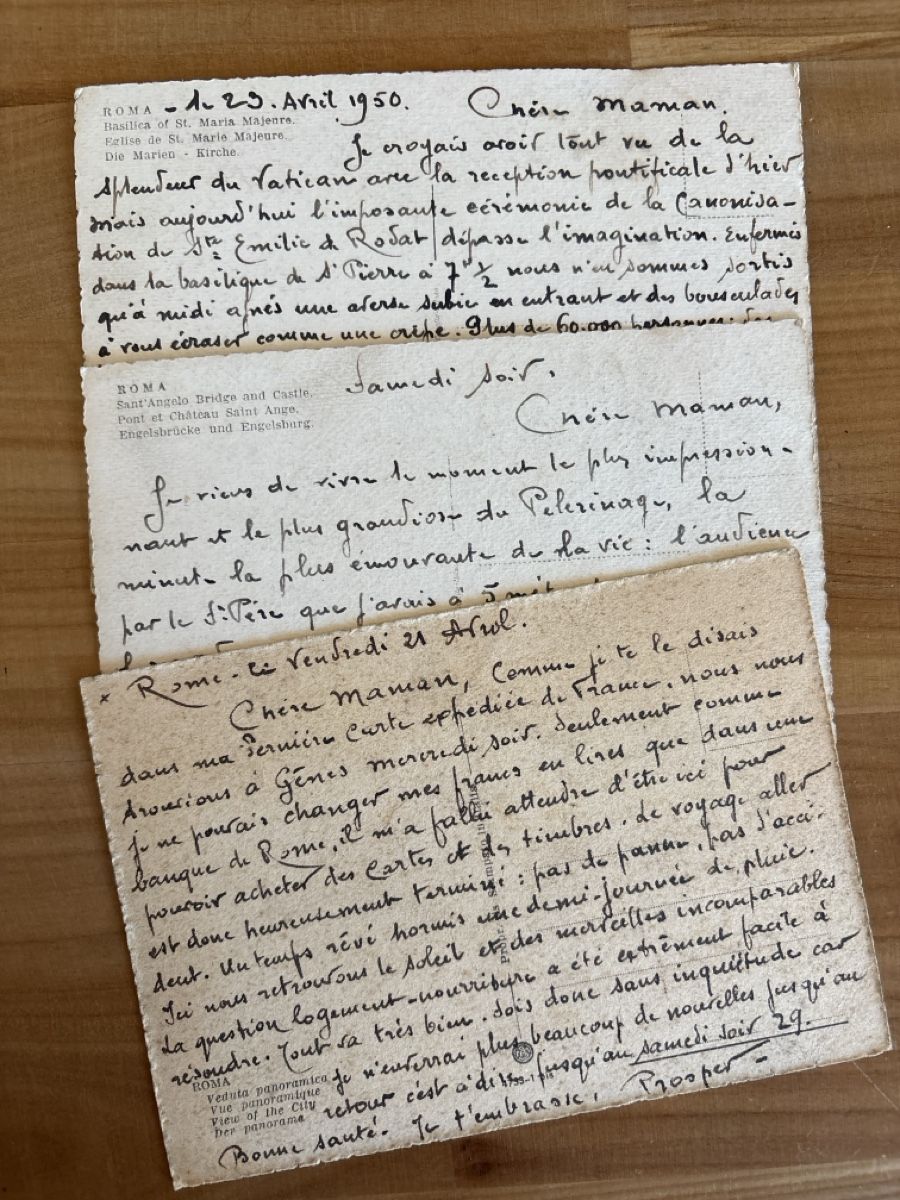 ROMA - le 23. Avril 1950.
Basilica of St. Maria Majeure.
Eglise de St. Marie Majeure.
Die Marien - Kirche.
Chère Maman.
Je croyais avoir tout vu de la
splendeur du Vatican avec la reception pontificale d'hier
mais aujourd'hui l'imposante cérémonie de la Canonisa-
tion de Ste Emilie de Rodat dépasse l'imagination. Enfermés
dans la basilique de St Pierre à 7h 1/2 nous n'en sommes sortis
qu'à midi après une averse subie en entrant et des bousculades
à vous écraser comme une crêpe. Plus de 60.000 personnes; des
ROMA
Sant'Angelo Bridge and Castle.
Pont et Château Saint Ange.
Engelsbrücke und Engelsburg.
Samedi soir.
Chère Maman,
Je viens de vivre le moment le plus impression-
nant et le plus grandiose du Pelerinage, la
minute la plus émouvante de la vie: l'audience
par le St Père que j'avais à 5
× Rome - ce Vendredi 21 Avril.
Chère Maman, Comme je te le disais
dans ma dernière carte expédiée de France, nous nous
trouvions à Gênes mercredi soir. Seulement comme
je ne pouvais changer mes francs en lires que dans une
banque de Rome, il m'a fallu attendre d'être ici pour
pouvoir acheter des cartes et des timbres. Le voyage aller
est donc heureusement terminé: pas de panne, pas d'acci-
dent. Un temps rêvé hormis une demi-journée de pluie.
Ici nous retrouvons le soleil et des merveilles incomparables
La question logement-nourriture a été extrêment facile à
résoudre. Tout va très bien. Sois donc sans inquiétude car
Je n'enverrai plus beaucoup de nouvelles jusqu'au
retour c'est à dire jusqu'au samedi soir 29.
Bonne santé. Je t'embrasse. Prosper -
ROMA
Veduta panoramica
Vue panoramique
View of the City
Der panorama